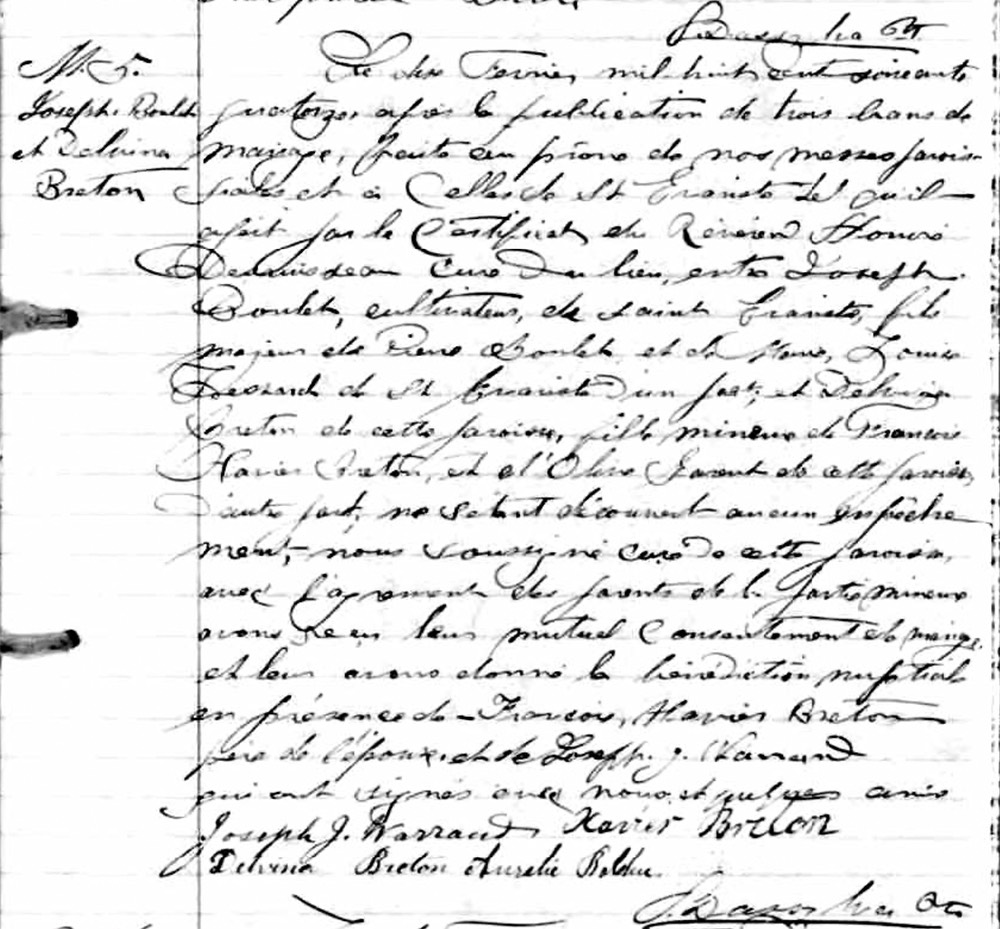 M. 5.
Joseph Boulet
et Delvina
Breton
Le dix Fevrier mil huit cent soixante
quatorze, après la publication de trois bans de
mariage, faite au prône de nos messes parois-
siales et à Celles de St Evariste tel qu'il
apert par le Certificat du Révérend Honoré
Desruisseau Curé du lieu, entre Joseph
Boulet, cultivateur, de saint Evariste, fils
majeur de Pierre Boulet et de Marie, Louise
de St Evariste d'un part; et Delvina
Breton de cette paroisse, fille mineure de Francois
Xavier Breton, et d'Olive Parent de cette paroisse,
d'autre part; ne s'etant découvert aucun empêche
ment, nous soussigné curé de cette paroisse,
avec l'agrement des parents de la partie mineure
avons reçu leur mutuel Consentement de mariage
et leur avons donné la bénédiction nuptiale
en présence de Francois, Xavier Breton
père de l'épouse et de Joseph. J. Warrand
qui ont signés avec nous, et quelques amis
Joseph J. Warrand Xavier Breton
Delvina Breton Aurelie Bolduc